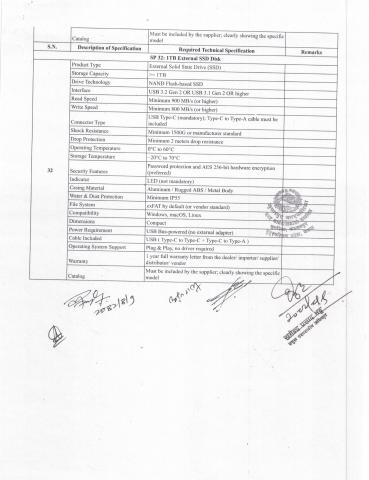 Catalog Must be included by the supplier; clearly showing the specific model
S.N. Description of Specification Required Technical Specification Remarks
SP 32: 1TB External SSD Disk
32
Product Type External Solid State Drive (SSD)
Storage Capacity >= 1TB
Drive Technology NAND Flash-based SSD
Interface USB 3.2 Gen 2 OR USB 3.1 Gen 2 OR higher
Read Speed Minimum 900 MB/s (or higher)
Write Speed Minimum 800 MB/s (or higher)
Connector Type USB Type-C (mandatory); Type-C to Type-A cable must be included
Shock Resistance Minimum 1500G or manufacturer standard
Drop Protection Minimum 2 meters drop resistance
Operating Temperature 0°C to 60°C
Storage Temperature -20°C to 70°C
Security Features Password protection and AES 256-bit hardware encryption (preferred)
Indicator LED (not mandatory)
Casing Material Aluminum / Rugged ABS / Metal Body
Water & Dust Protection Minimum IP55
File System exFAT by default (or vendor standard)
Compatibility Windows, macOS, Linux
Dimensions Compact
Power Requirement USB Bus-powered (no external adapter)
Cable Included USB ( Type-C to Type-C + Type-C to Type-A )
Operating System Support Plug & Play; no driver required
Warranty 1 year full warranty letter from the dealer/ importer/ supplier/ distributor/ vendor
Catalog Must be included by the supplier; clearly showing the specific model